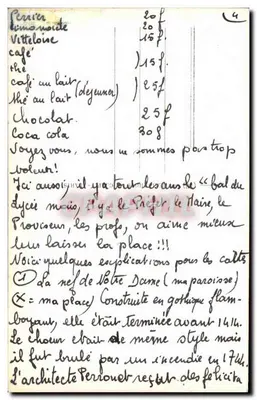 4
Perrier 20f
Limonade 20f
Vitteloise 15f
café
thé ) 15f
café au lait (dejeuner) ) 25f
thé au lait
chocolat. 25f
Coca cola 30f
Voyez vous, nous ne sommes pas trop
voleurs!
Ici aussi il y a tout les ans le "bal du
lycée mais, il y a le Préfet, le Maire, le
Proviseur, les profs, on aime mieux
leur laisser la place!!!
Voici quelques explications pour les cartes
① La nef de Notre Dame (ma paroisse)
(X = ma place) Construite en gothique flam-
boyant, elle était terminée avant 1414.
Le choeur était de meme style mais
il fut brulé par un incendie en 1744.
L'architecte Perronet reçut des félicita